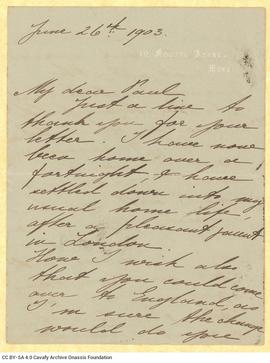 June 26th 1903.
Hove.
My dear Paul
Just a line to
thank you for your
letter. I have now
been home over a
fortnight, & have
settled down into my
usual home life
after a pleasant jaunt
in London.
How I wish also
that you could come
over to England, as
I'm sure the change
would do you
CC BY-SA 4.0 Cavafy Archive Onassis Foundation